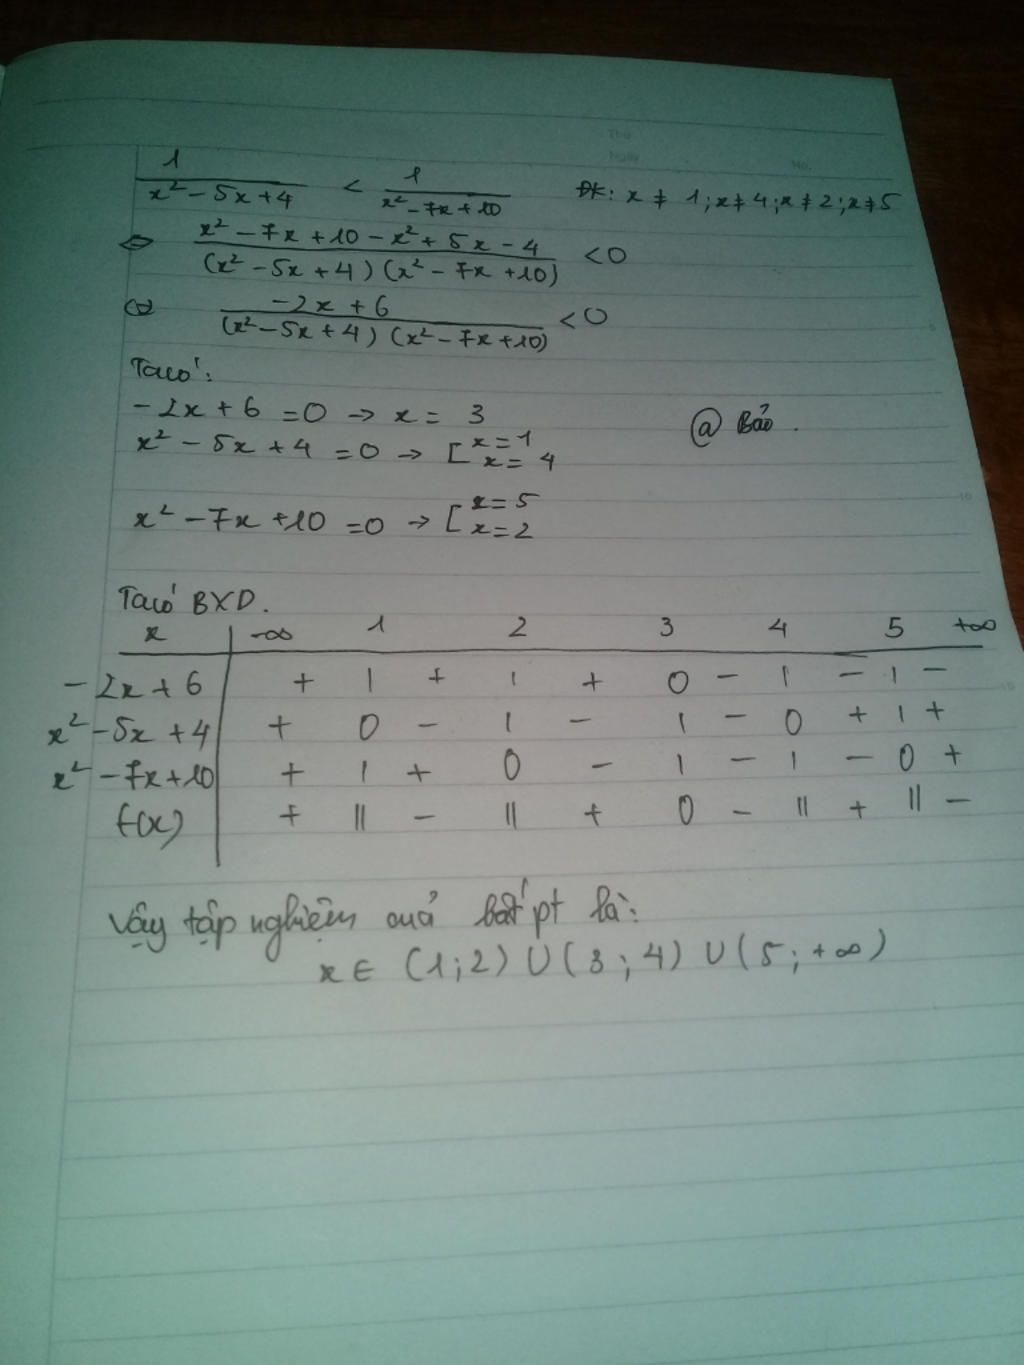 Thứ
Ngày No.
1/(x² - 5x + 4) < 1/(x² - 7x + 10) ĐK: x ≠ 1; x ≠ 4; x ≠ 2; x ≠ 5
⇔ (x² - 7x + 10 - x² + 5x - 4)/((x² - 5x + 4)(x² - 7x + 10)) < 0
⇔ (-2x + 6)/((x² - 5x + 4)(x² - 7x + 10)) < 0
Ta có:
-2x + 6 = 0 → x = 3
@ Bảo.
x² - 5x + 4 = 0 → [ x = 1
x = 4
x² - 7x + 10 = 0 → [ x = 5
x = 2
Ta có BXD.
x | -∞ 1 2 3 4 5 +∞
-2x + 6 | + | + | + 0 - | - | -
x² - 5x + 4 | + 0 - | - | - 0 + | +
x² - 7x + 10 | + | + 0 - | - | - 0 +
f(x) | + || - || + 0 - || + || -
Vậy tập nghiệm cuả bất pt là:
x ∈ (1; 2) ∪ (3; 4) ∪ (5; +∞)